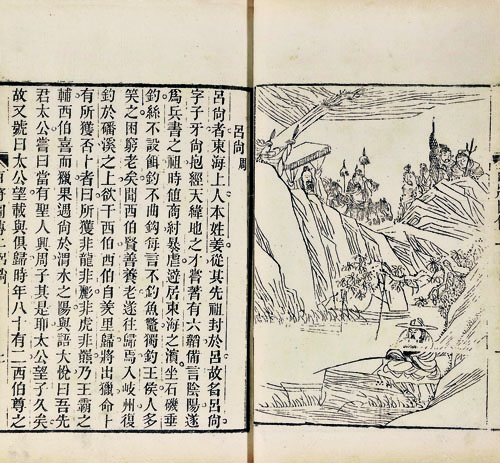 呂尚 周
呂尚者東海上人本姓姜從其先祖封於呂故名呂尚
字子牙尚抱經天緯地之才嘗著有六韜備言陰陽遂
爲兵書之祖時値商紂暴虐遊居東海之濱坐石磯垂
釣絲不設餌鈎不曲每言不釣魚鼈獨釣王侯人多
笑之困窮老矣聞西伯賢善養老遂往歸焉入岐州復
釣於磻溪之上欲干西伯西伯自羑里歸將出獵命卜
有所獲否卜者曰所獲非龍非彲非虎非羆乃王霸之
輔西伯喜而獵果遇尚於渭水之陽與語大悅曰吾先
君太公嘗曰當有聖人興周子其是耶太公望子久矣
故又號曰太公望載與俱歸時年八十有二西伯尊之